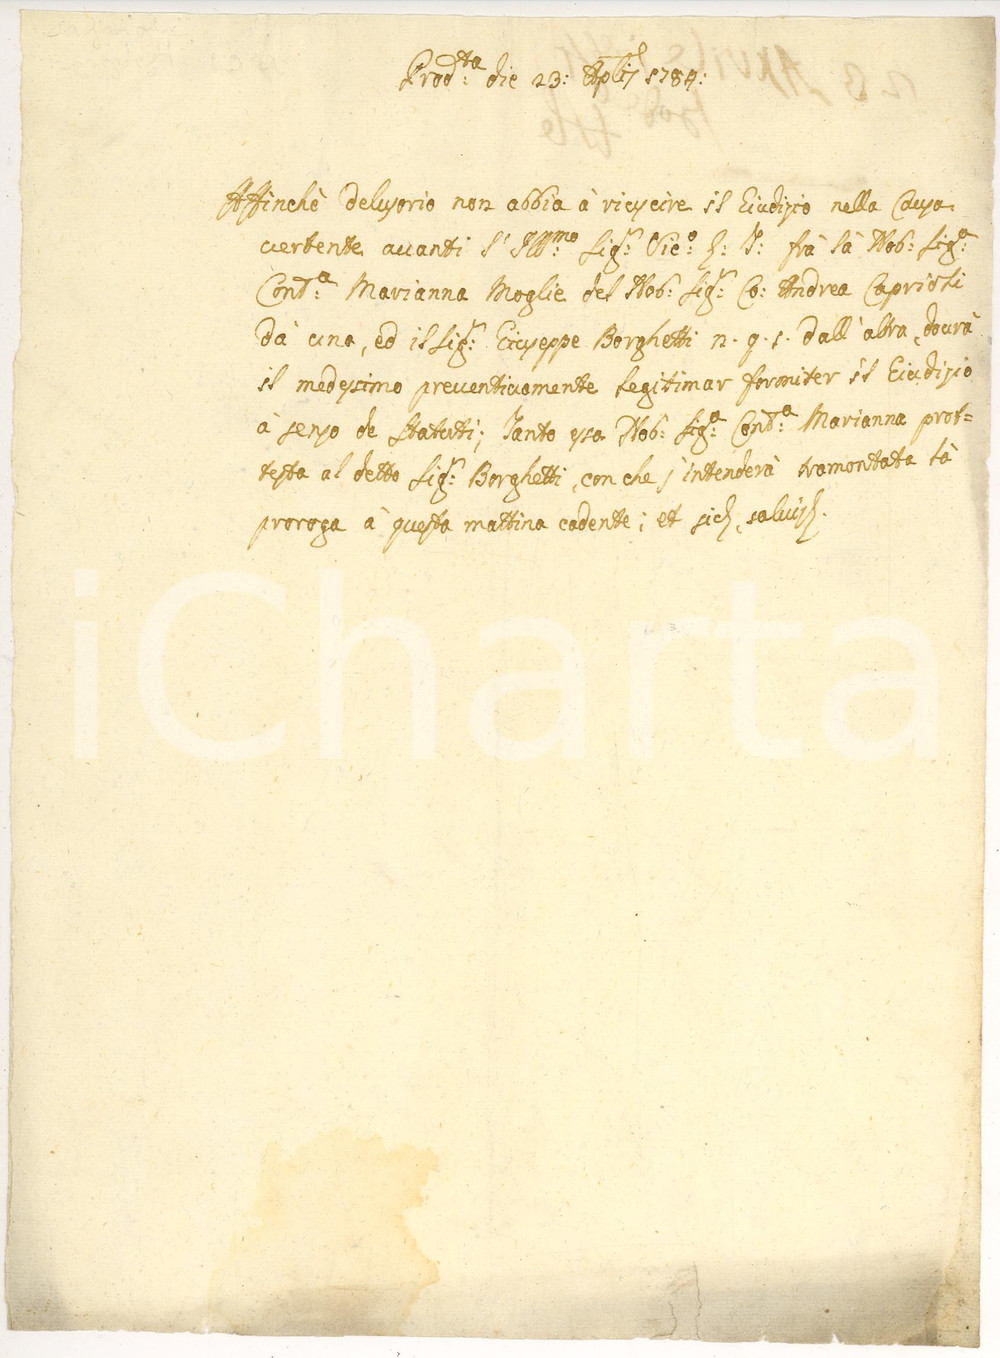 Prod.ta die 23: Aplis 1784:
Affinchè delusorio non abbia à riuscire il Giudizio nella Causa
vertente avanti l' Ill.mo Sig.r Vic.o G: I: frà là Nob: Sig.a
Cont.a Marianna Moglie del Nob: Sig.r Co: Andrea Caprioli
dà una, ed il Sig.r Giuseppe Borghetti n. q. s. dall' altra, dourà
il medesimo preventivamente legitimar formiter il Giudizio
à senso de Statuti; Tanto essa Nob: Sig.a Cont.a Marianna prot-
testa al detto Sig.r Borghetti, con che s' intenderà tramontata là
proroga à questa mattina cadente; et sic, salvis.
iCharta